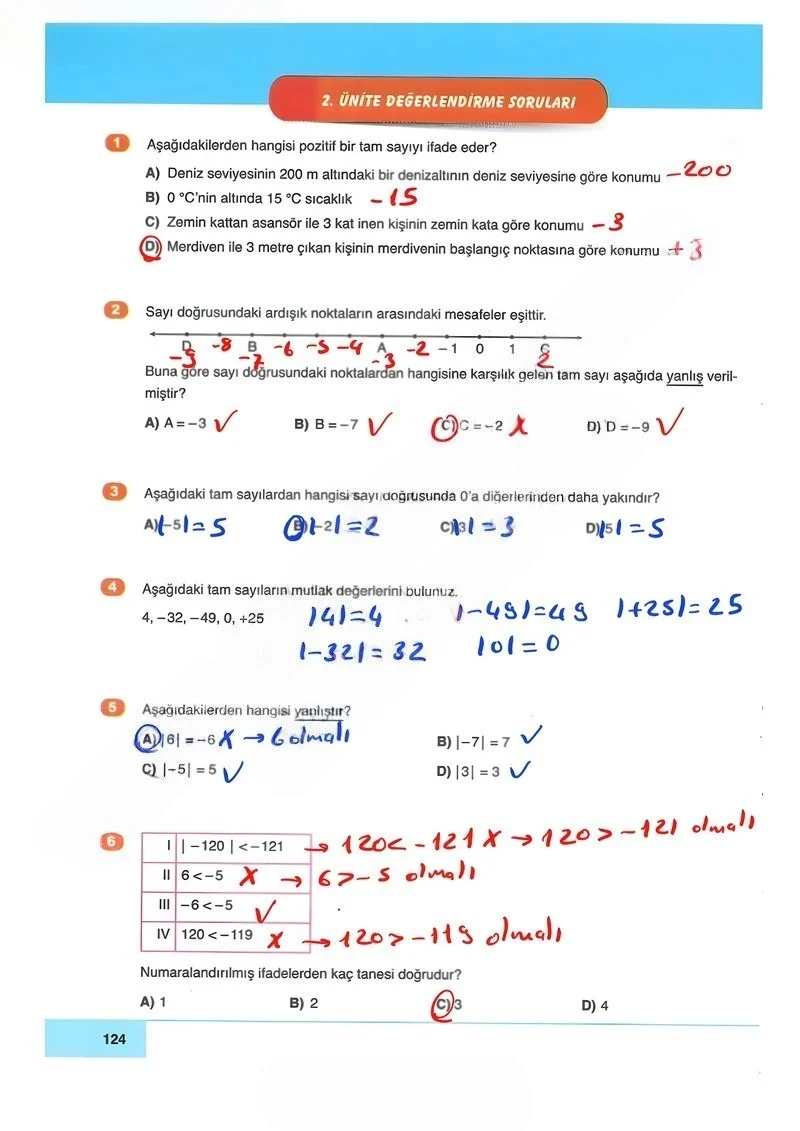 2. ÜNİTE DEĞERLENDİRME SORULARI
1 Aşağıdakilerden hangisi pozitif bir tam sayıyı ifade eder?
A) Deniz seviyesinin 200 m altındaki bir denizaltının deniz seviyesine göre konumu -200
B) 0 °C'nin altında 15 °C sıcaklık -15
C) Zemin kattan asansör ile 3 kat inen kişinin zemin kata göre konumu -3
D) Merdiven ile 3 metre çıkan kişinin merdivenin başlangıç noktasına göre konumu +3
2 Sayı doğrusundaki ardışık noktaların arasındaki mesafeler eşittir.
D -8 B -6 -5 -4 A -2 -1 0 1 C
-9 -7 -3 2
Buna göre sayı doğrusundaki noktalardan hangisine karşılık gelen tam sayı aşağıda yanlış veril-
miştir?
A) A = -3 ✓ B) B = -7 ✓ C) C = -2 x D) D = -9 ✓
3 Aşağıdaki tam sayılardan hangisi sayı doğrusunda 0'a diğerlerinden daha yakındır?
A) |-5| = 5 B) |-2| = 2 C) |3| = 3 D) |5| = 5
4 Aşağıdaki tam sayıların mutlak değerlerini bulunuz.
4, -32, -49, 0, +25 |4|=4 |-49|=49 |+25|=25
|-32| = 32 |0| = 0
5 Aşağıdakilerden hangisi yanlıştır?
A) |6| = -6 x → 6 olmalı B) |-7| = 7 ✓
C) |-5| = 5 ✓ D) |3| = 3 ✓
6 I | -120 | < -121 → 120 < -121 x → 120 > -121 olmalı
II 6 < -5 x → 6 > -5 olmalı
III -6 < -5 ✓
IV 120 < -119 x → 120 > -119 olmalı
Numaralandırılmış ifadelerden kaç tanesi doğrudur?
A) 1 B) 2 C) 3 D) 4
124